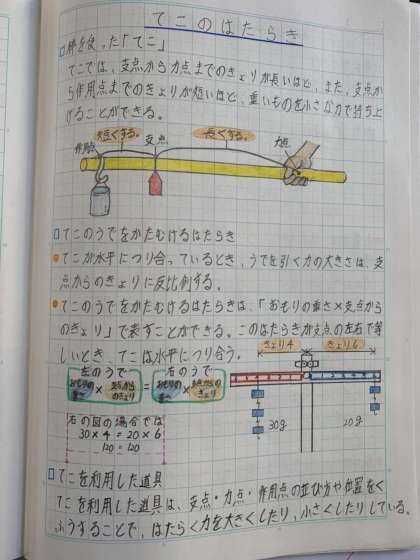 てこのはたらき
棒を使った「てこ」
てこでは、支点から力点までのきょりが長いほど、また、支点か
ら作用点までのきょりが短いほど、重いものを小さな力で持ち上
げることができる。
短くする。
長くする。
作用点
支点
力点
てこのうでをかたむけるはたらき
てこが水平につり合っているとき、うでを引く力の大きさは、支
点からのきょりに反比例する。
てこのうでをかたむけるはたらきは、「おもりの重さ×支点から
のきょり」で表すことができる。このはたらきが支点の左右で等
しいとき、てこは水平につり合う。
きょり4
きょり6
左のうで
右のうで
おもりの重さ × 支点からのきょり = おもりの重さ × 支点からのきょり
右の図の場合では
30×4=20×6
120=120
30g
20g
てこを利用した道具
てこを利用した道具は、支点・力点・作用点の並び方や位置をく
ふうすることで、はたらく力を大きくしたり、小さくしたりしている。